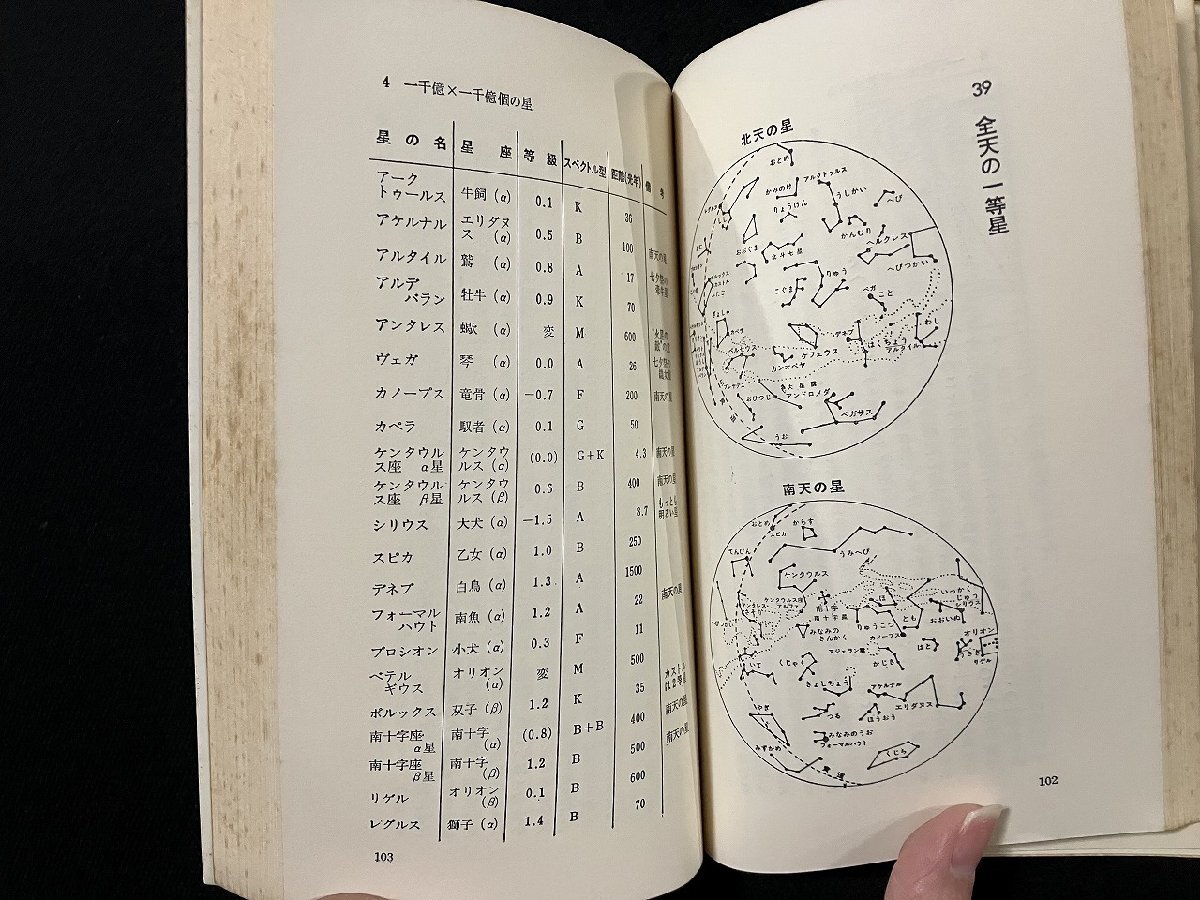 39 全天の一等星
北天の星
おとめ
かみのけ
アルクトゥルス
うしかい
へび
りょうけん
かんむり
ヘルクレス
へびつかい
おおぐま
北斗七星
りゅう
こぐま
ベガ
こと
ぎょしゃ
カペラ
デネブ
わし
はくちょう
アルタイル
ペルセウス
ケフェウス
カシオペヤ
おひつじ
アンドロメダ
ペガサス
うお
南天の星
おとめ
からす
てんびん
うみへび
ケンタウルス
ケンタウルス座
アルファ
南十字
南十字星
ほ
いっかくじゅう
シリウス
おおいぬ
とも
りゅうこつ
カノープス
みなみの
さんかく
オリオン
はと
うさぎ
リゲル
いて
くじゃく
マゼラン雲
かじき
きょしちょう
アケルナル
エリダヌス
やぎ
つる
ほうおう
みなみのうお
フォーマルハウト
みずがめ
くじら
黄道
102
4 一千億×一千億個の星
星の名 星座 等級 スペクトル型 距離(光年) 備考
アークトゥールス 牛飼(α) 0.1 K 36
アケルナル エリダヌス(α) 0.5 B 100 南天の星
アルタイル 鷲(α) 0.8 A 17 七夕の牽牛星
アルデバラン 牡牛(α) 0.9 K 70
アンタレス 蝎(α) 変 M 600
ヴェガ 琴(α) 0.0 A 26 七夕の織女星
カノープス 竜骨(α) −0.7 F 200 南天の星
カペラ 馭者(α) 0.1 G 50
ケンタウルス座 α星 ケンタウルス(α) (0.0) G+K 4.3 南天の星
ケンタウルス座 β星 ケンタウルス(β) 0.6 B 400 南天の星
シリウス 大犬(α) −1.5 A 8.7 もっとも明るい星
スピカ 乙女(α) 1.0 B 250
デネブ 白鳥(α) 1.3 A 1500
フォーマルハウト 南魚(α) 1.2 A 22 南天の星
プロシオン 小犬(α) 0.3 F 11
ベテルギウス オリオン(α) 変 M 500
ポルックス 双子(β) 1.2 K 35 カストルは2等星
南十字座α星 南十字(α) (0.8) B+B 400 南天の星
南十字座β星 南十字(β) 1.2 B 500 南天の星
リゲル オリオン(β) 0.1 B 600
レグルス 獅子(α) 1.4 B 70
103